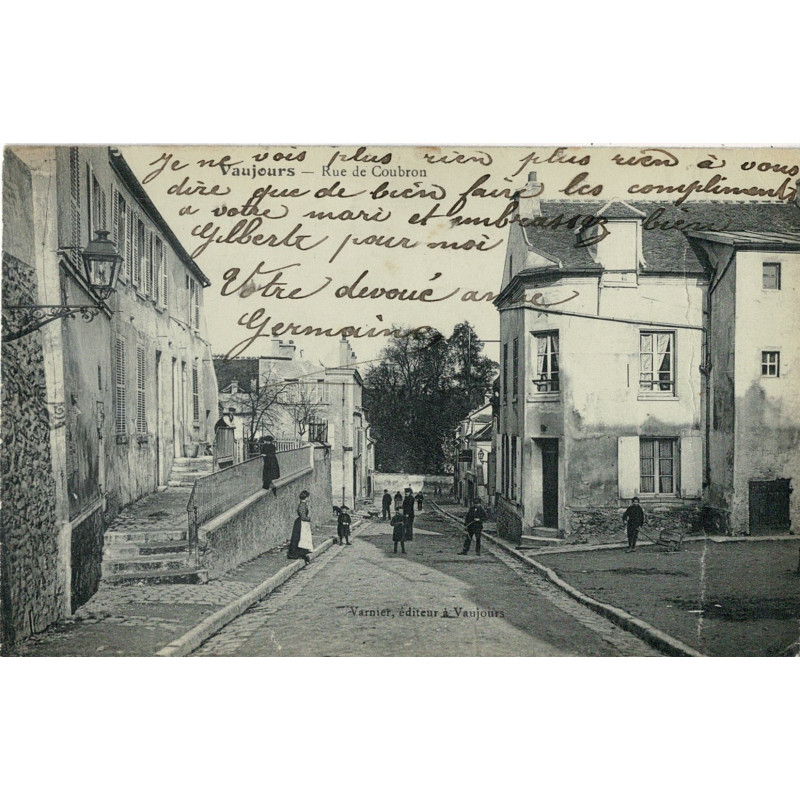 Je ne vois plus rien plus rien à vous
Vaujours — Rue de Coubron
dire que de bien faire les compliments
a votre mari et embrassez bien
Gilberte pour moi
Votre devoué amie
Germaine
Varnier, éditeur à Vaujours